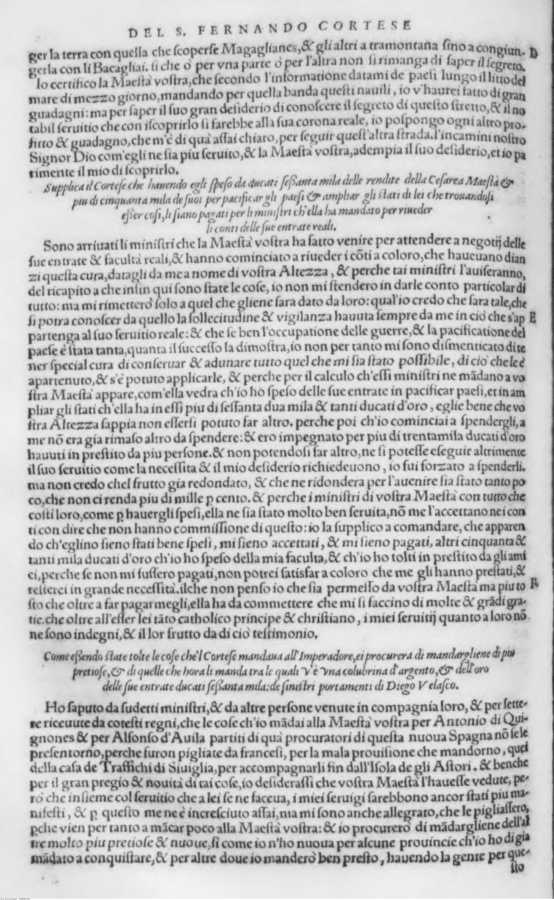 DEL S. FERNANDO CORTESE
ger la terra con quella che scoperse Magaglianes, & gli altri a tramontana sino a congiun- D
gerla con li Bacagliai. si che ò per vna parte ò per l'altra non si rimanga di saper il segreto.
Io certifico la Maestà vostra, che secondo l'informatione datami de paesi lungo il litto del
mare di mezzo giorno, mandando per quella banda questi nauili, io v'haurei fatto di gran
guadagni: ma per saper il suo gran desiderio di conoscere il segreto di questo stretto, & il no
tabil seruitio che con iscoprirlo si farebbe alla sua corona reale, io pospongo ogni altro pro-
fitto & guadagno, che m'è di quà assai chiaro, per seguir quest'altra strada. l'incamini nostro
Signor Dio com'egli ne sia piu seruito, & la Maestà vostra, adempia il suo desiderio, et io pa
rimente il mio di scoprirlo.
Supplica il Cortese che hauendo egli speso da ducati sessanta mila delle rendite della Cesarea Maestà &
piu di cinquanta mila de suoi per pacificar gli paesi & ampliar gli stati di lei che trouandosi
esser cosi, li siano pagati per li ministri ch'ella ha mandato per riueder
li conti delle sue entrate reali.
Sono arriuati li ministri che la Maestà vostra ha fatto venire per attendere a negotij delle
sue entrate & facultà reali, & hanno cominciato a riueder i cōti a coloro, che haueuano dian
zi questa cura, datagli da me a nome di vostra Altezza, & perche tai ministri l'auiseranno,
del ricapito a che insin qui sono state le cose, io non mi stendero in darle conto particolar di
tutto: ma mi rimetterò solo a quel che gliene sarà dato da loro: qual'io credo che sarà tale, che
si potrà conoscer da quello la sollecitudine & vigilanza hauuta sempre da me in ciò che s'ap E
partenga al suo seruitio reale: & che se ben l'occupatione delle guerre, & la pacificatione del
paese è stata tanta, quanta il successo la dimostra, io non per tanto mi sono dismenticato di te
ner special cura di conseruar & adunare tutto quel che mi sia stato possibile, di ciò che le è
apartenuto, & s'è potuto applicarle, & perche per il calculo ch'essi ministri ne mādano a vo
stra Maestà appare, com'ella vedrà ch'io hò speso delle sue entrate in pacificar paesi, et in am
pliar gli stati ch'ella ha in essi piu di sessanta dua mila & tanti ducati d'oro, eglie bene che vo
stra Altezza sappia non essersi potuto far altro. perche poi ch'io cominciai a spendergli, a
me nō era già rimaso altro da spendere: & ero impegnato per piu di trentamila ducati d'oro
hauuti in prestito da piu persone. & non potendosi far altro, ne si potesse eseguir altrimente
il suo seruitio come la necessità & il mio desiderio richiedeuono, io fui forzato a spenderli.
ma non credo chel frutto già redondato, & che ne ridonderà per l'auenire sia stato tanto po
co, che non ci renda piu di mille p cento. & perche i ministri di vostra Maestà con tutto che
cosi ti loro, come p hauergli spesi, ella ne sia stato molto ben seruita, nō me l'accettano nei con
ti con dire che non hanno commissione di questo: io la supplico a comandare, che apparen
do ch'eglino sieno stati bene spesi, mi sieno accettati, & mi sieno pagati, altri cinquanta &
tanti mila ducati d'oro ch'io hò speso della mia facultà, & ch'io hò tolti in prestito da gli ami
ci, perche se non mi fussero pagati, non potrei satisfar a coloro che me gli hanno prestati, &
resterei in grande necessità. ilche non penso io che sia permesso da vostra Maestà ma piu to F
sto che oltre a far pagarmegli, ella ha da commettere che mi si faccino di molte & grādi gra-
tie. che oltre all'esser lei tāto catholico principe & christiano, i miei seruitij quanto a loro nō
ne sono indegni, & il lor frutto da di ciò testimonio.
Come essendo state tolte le cose che'l Cortese mandaua all'Imperadore, ei procurerà di mandargliene di piu
pretiose, & di quelle che hora li manda tra le quali v'è vna colubrina d'argento, & dell'oro
delle sue entrate ducati sessanta mila: de sinistri portamenti di Diego Velasco.
Ho saputo da sudetti ministri, & da altre persone venute in compagnia loro, & per lette-
re riceuute da cotesti regni, che le cose ch'io mādai alla Maestà vostra per Antonio di Qui-
gnones & per Alfonso d'Auila partiti di quà procuratori di questa nuoua Spagna nō se le
presentorno, perche furon pigliate da francesi, per la mala prouisione che mandorno, quei
della casa de Traffichi di Siuiglia, per accompagnarli fin dall'Isola de gli Astori. & benche
per il gran pregio & nouità di tai cose, io desiderassi che vostra Maestà l'hauesse vedute, pe-
rò che insieme col seruitio che a lei se ne faceua, i miei seruigi sarebbono ancor stati piu ma-
nifesti, & p questo me ne è incresciuto assai, ma mi sono anche allegrato, che le pigliassero,
pche vien per tanto a mācar poco alla Maestà vostra: & io procurerò di mādargliene dell'al
tre molto piu pretiose & nuoue, sì come io n'hò nuoua per alcune prouincie ch'io hò di già
mādato a conquistare, & per altre doue io manderò ben presto, hauendo la gente per que-
sto